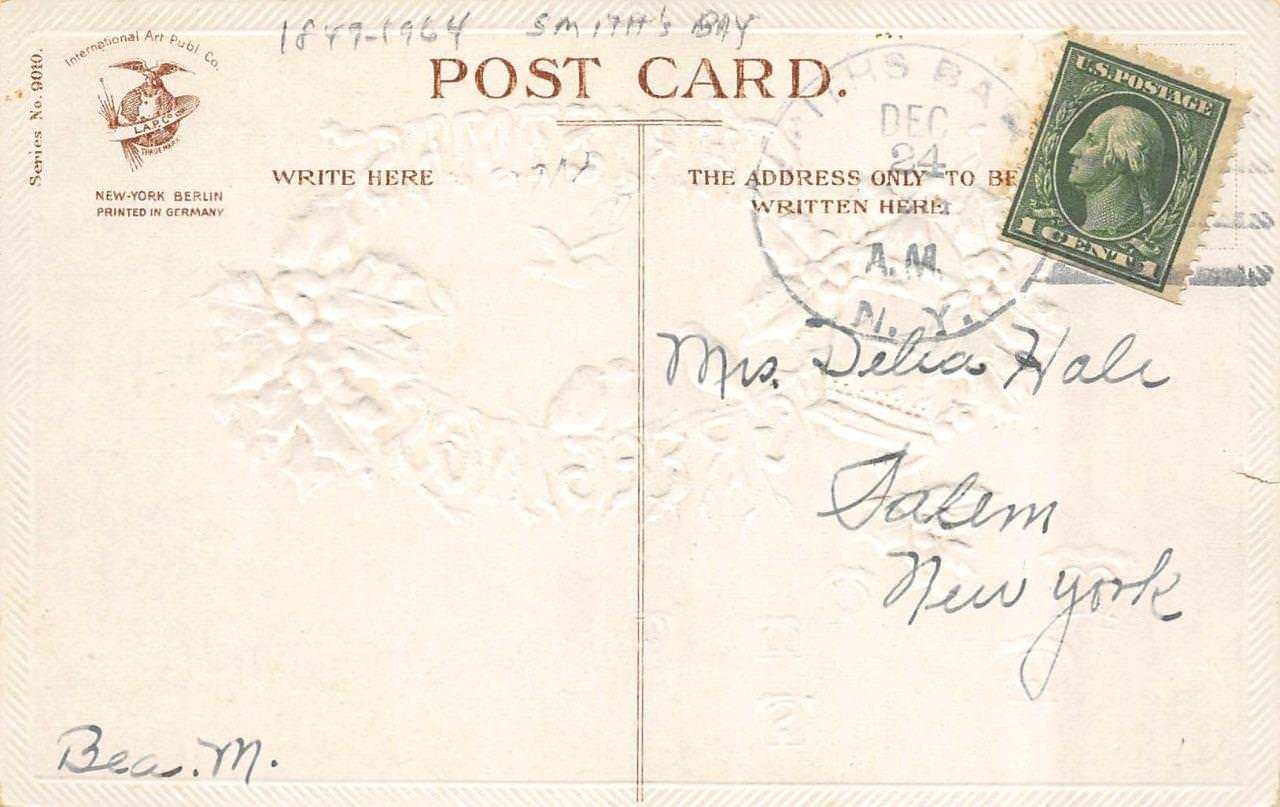 1849-1964 SMITH'S BAY
International Art Publ. Co.
Series No. 9010.
I.A.P. Co.
TRADE MARK
NEW-YORK BERLIN
PRINTED IN GERMANY
POST CARD.
WRITE HERE
THE ADDRESS ONLY TO BE
WRITTEN HERE.
DEC
24
A.M.
N. Y.
U.S. POSTAGE
1 CENT 1
Mrs. Delia Hale
Salem
New York
Bea. M.